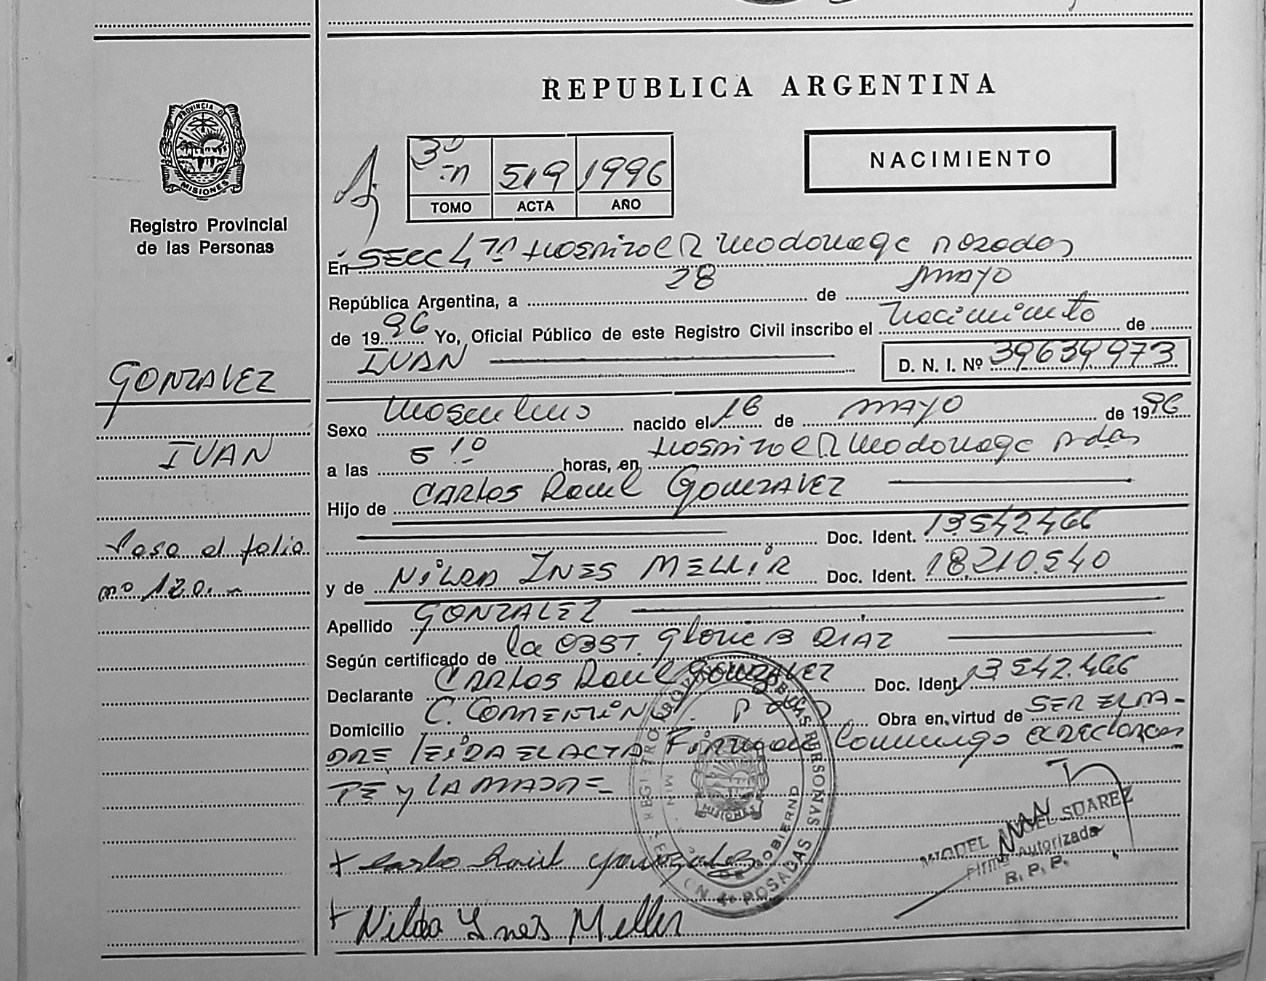 REPUBLICA ARGENTINA
PROVINCIA DE
MISIONES
Registro Provincial
de las Personas
3º
519 1996
TOMO ACTA AÑO
NACIMIENTO
En SECC 4ta Hospital R Madariaga Posadas
República Argentina, a 28 de MAYO
de 1996 Yo, Oficial Público de este Registro Civil inscribo el Nacimiento de
IVAN D. N. I. Nº 39639973
GONZALEZ
IVAN
Paso al folio
nº 120.-
Sexo Masculino nacido el 16 de MAYO de 1996
a las 5 10 horas, en Hospital R Madariaga Pdas
Hijo de CARLOS Raul GONZALEZ
Doc. Ident. 13542466
y de NILDA INES MELLER Doc. Ident. 18.210.540
Apellido GONZALEZ
Según certificado de la OBST. Gloria B DIAZ
Declarante CARLOS Raul GONZALEZ Doc. Ident. 13542.466
Domicilio C. Obra en virtud de SER EL PA-
DRE LEIDA EL ACTA Firma conmigo el declaran
TE Y LA MADRE-
REGISTRO DE LAS PERSONAS
MISIONES
POSADAS
MIGUEL ANGEL SUAREZ
Firma Autorizada
R. P. P.
+ Carlo Raul Gonzales
+ Nilda Ines Meller